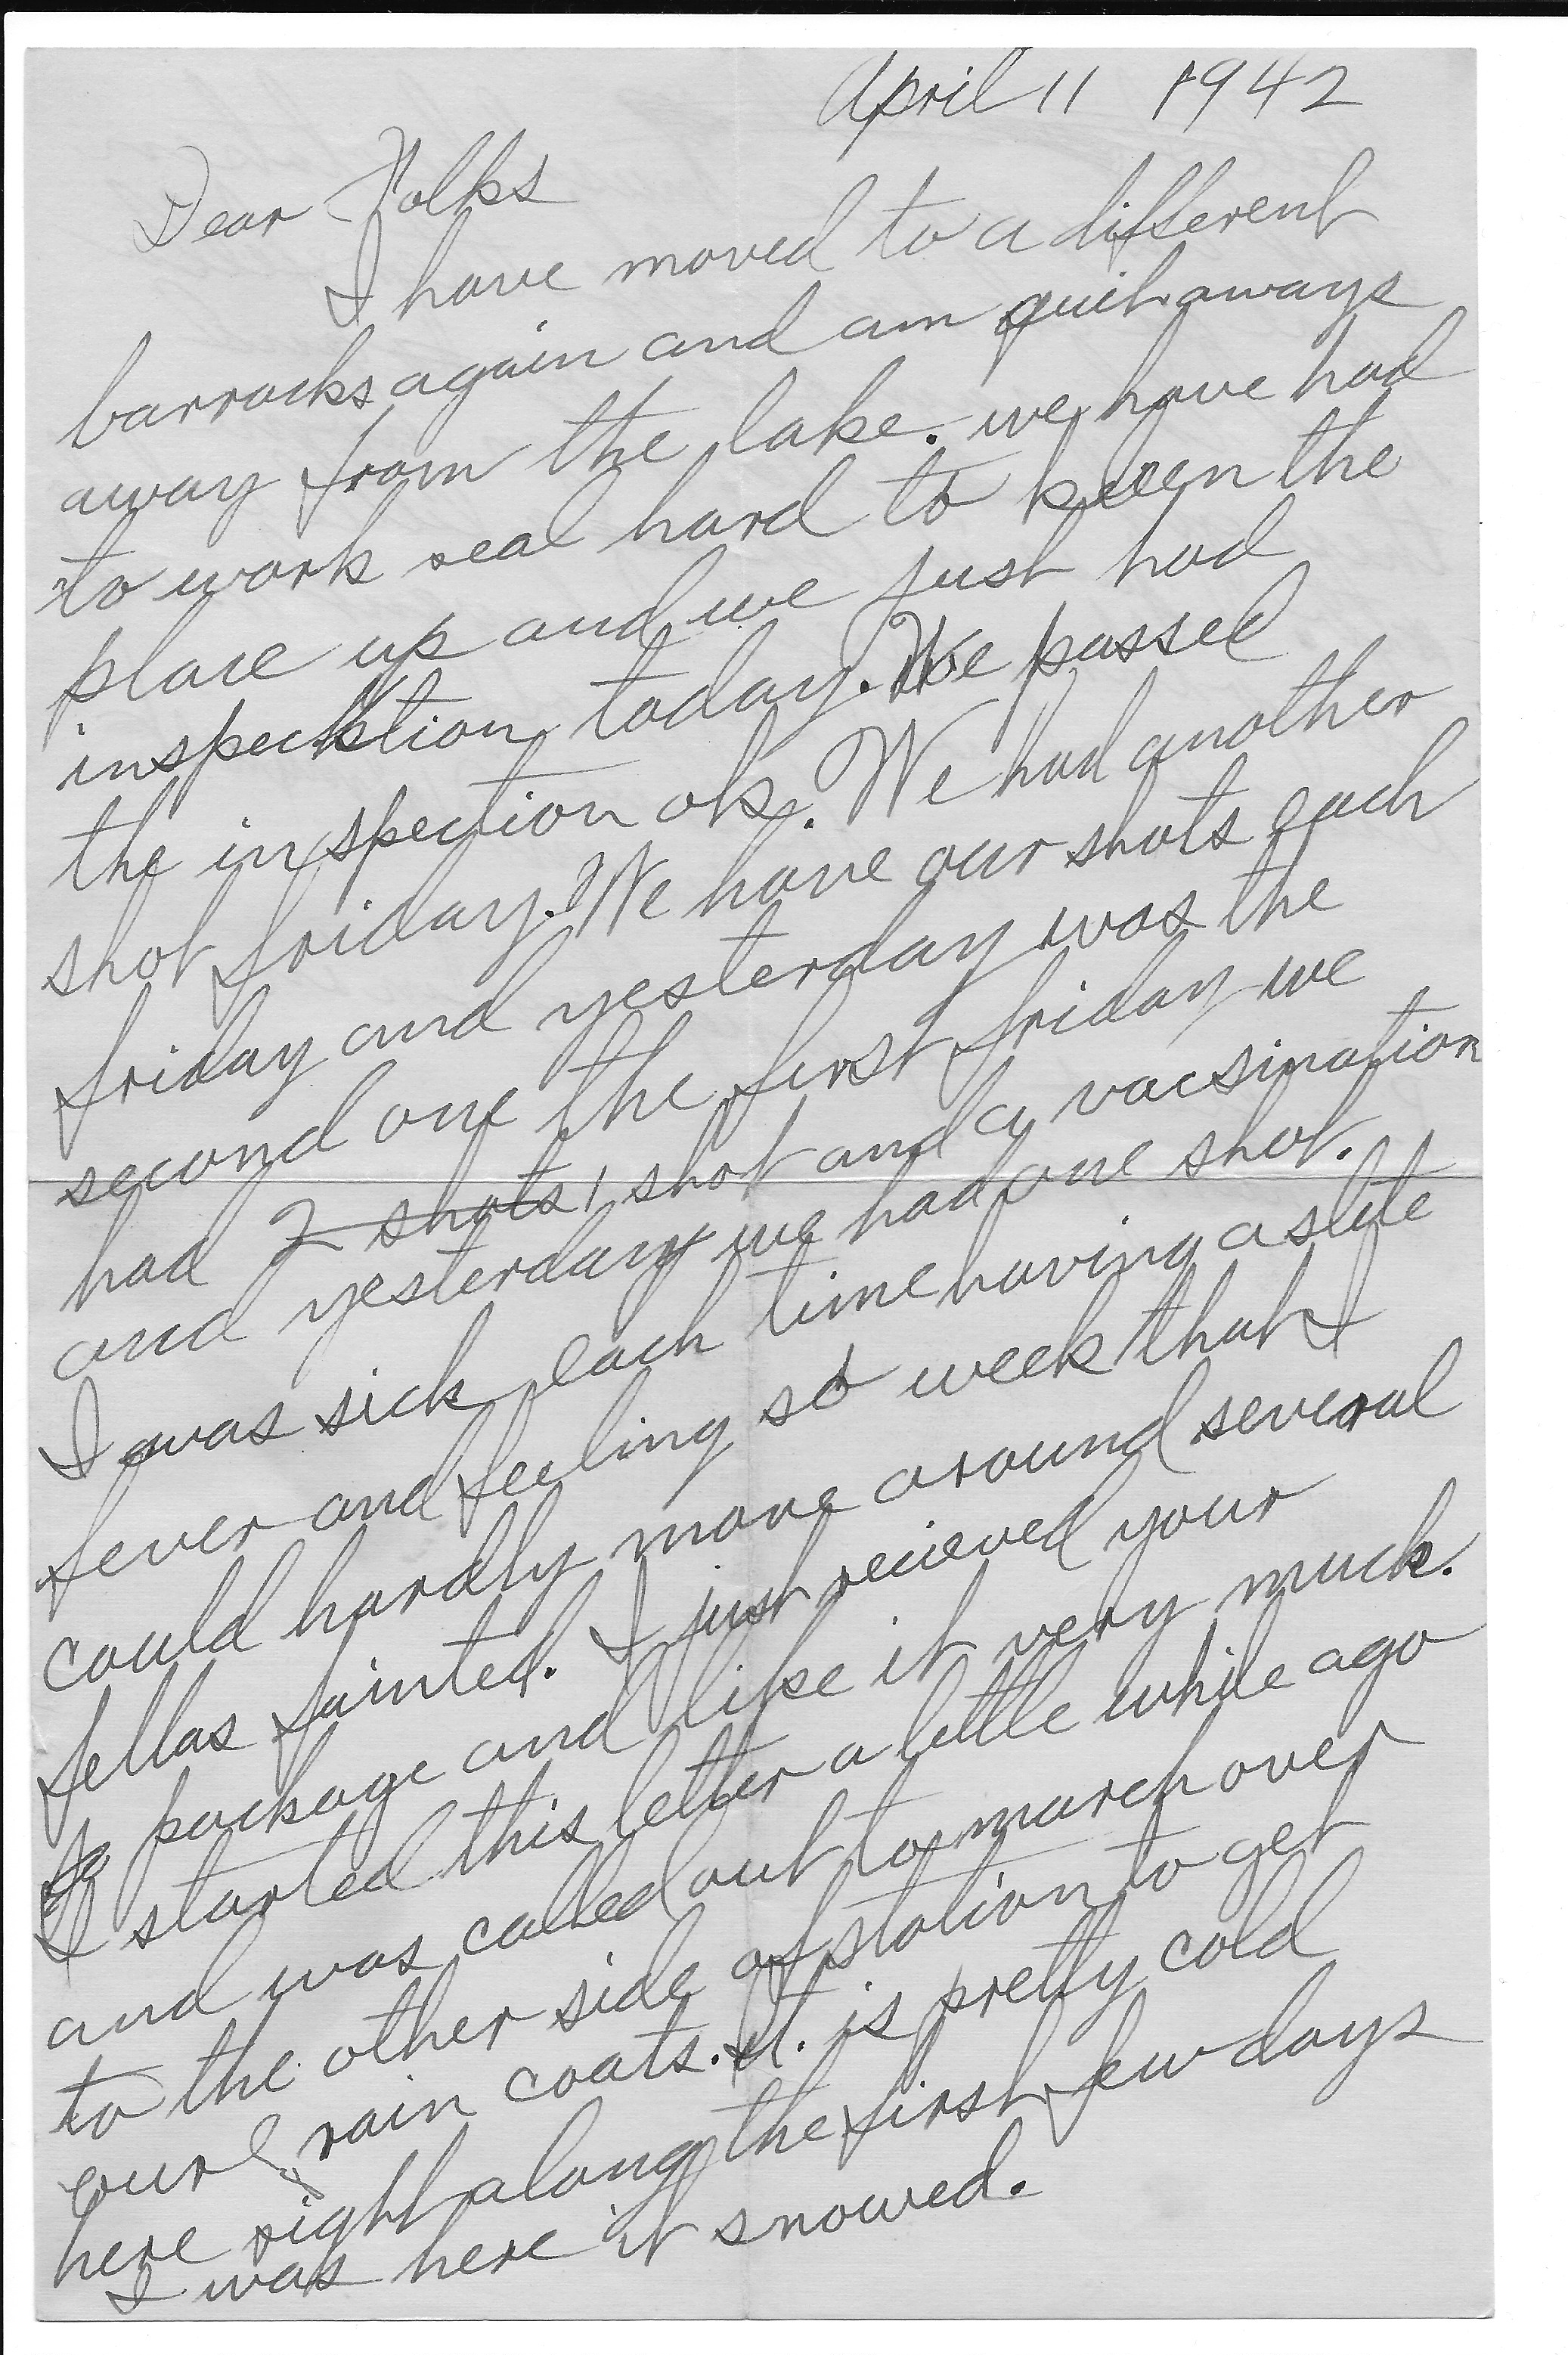 April 11 1942
Dear Folks
I have moved to a different
barracks again and am quit aways
away from the lake. we have had
to work real hard to keen the
place up and we just had
inspecktion today. We passed
the inspection ok. We had another
shot friday. We have our shots each
friday and yesterday was the
second one the first friday we
had 2 shots 1 shot and a vacsination
and yesterday we had one shot.
I was sick each time having a slite
fever and feeling so week that I
could hardly move around several
fellas fainted. I just recieved your
package and like it very much.
I started this letter a little while ago
and was called out to march over
to the other side of station to get
our rain coats. It. is pretty cold
here right along the first few days
I was here it snowed.